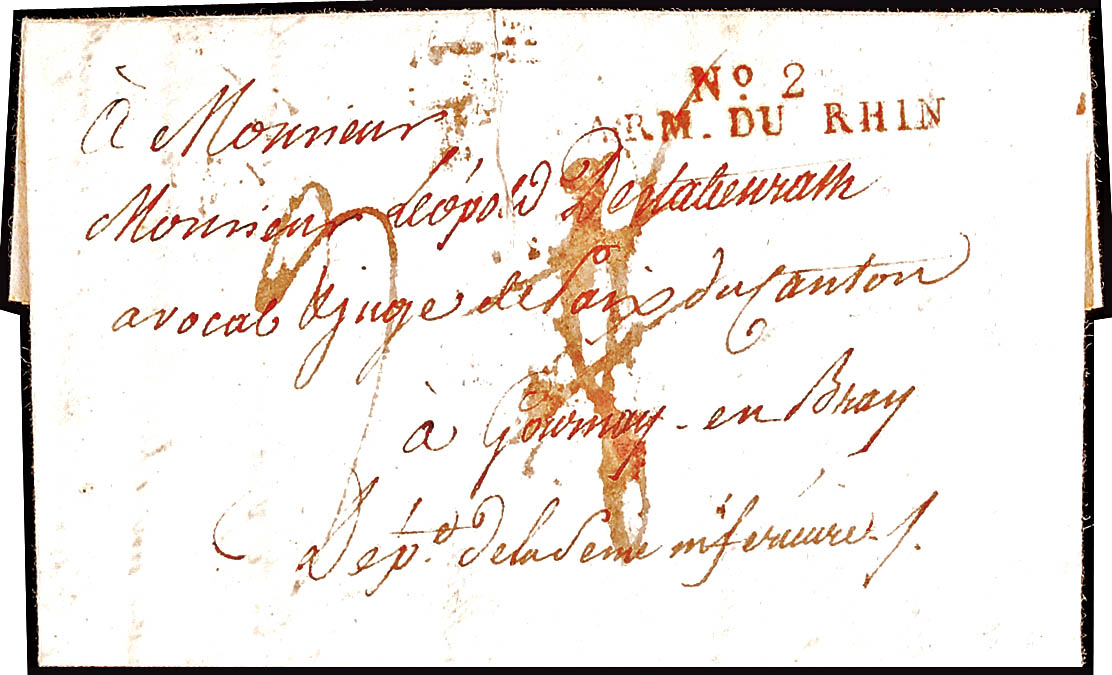 No 2
ARM. DU RHIN
à Monsieur
Monsieur Léopold
avocat & juge de Paix du Canton
à Gournay - en Bray
Dépt. de la Seine inferieure